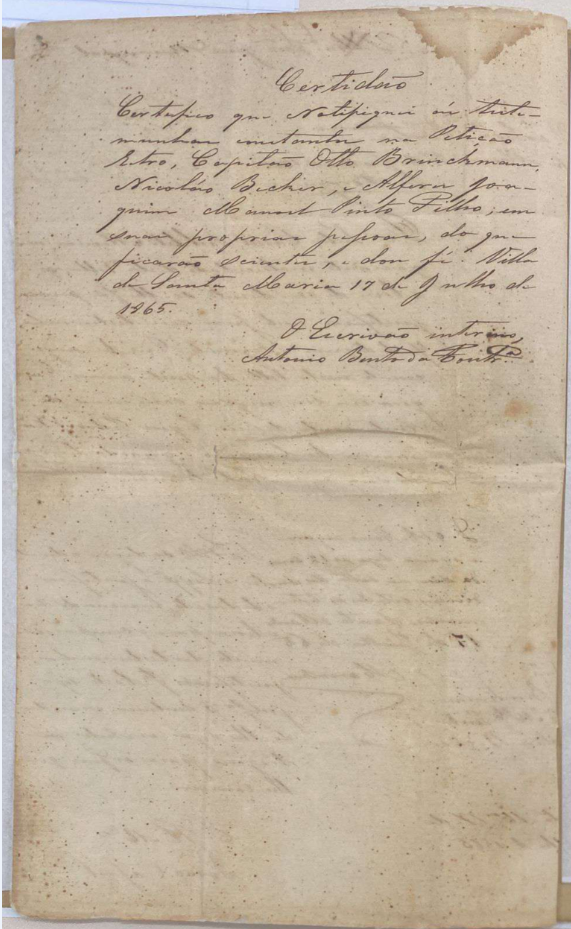 Certidão
Certefico que Notifiquei as teste-
munhas constantes na Petição
retro, Capitão Otto Brinchmann,
Nicoláo Becker, e Alferes Joa-
quim Manoel Pinto Filho, em
suas proprias pessoas, do que
ficarão scientes, e dou fé. Villa
de Santa Maria 17 de Julho de
1865.
O Escrivão interino,
Antonio Bento da